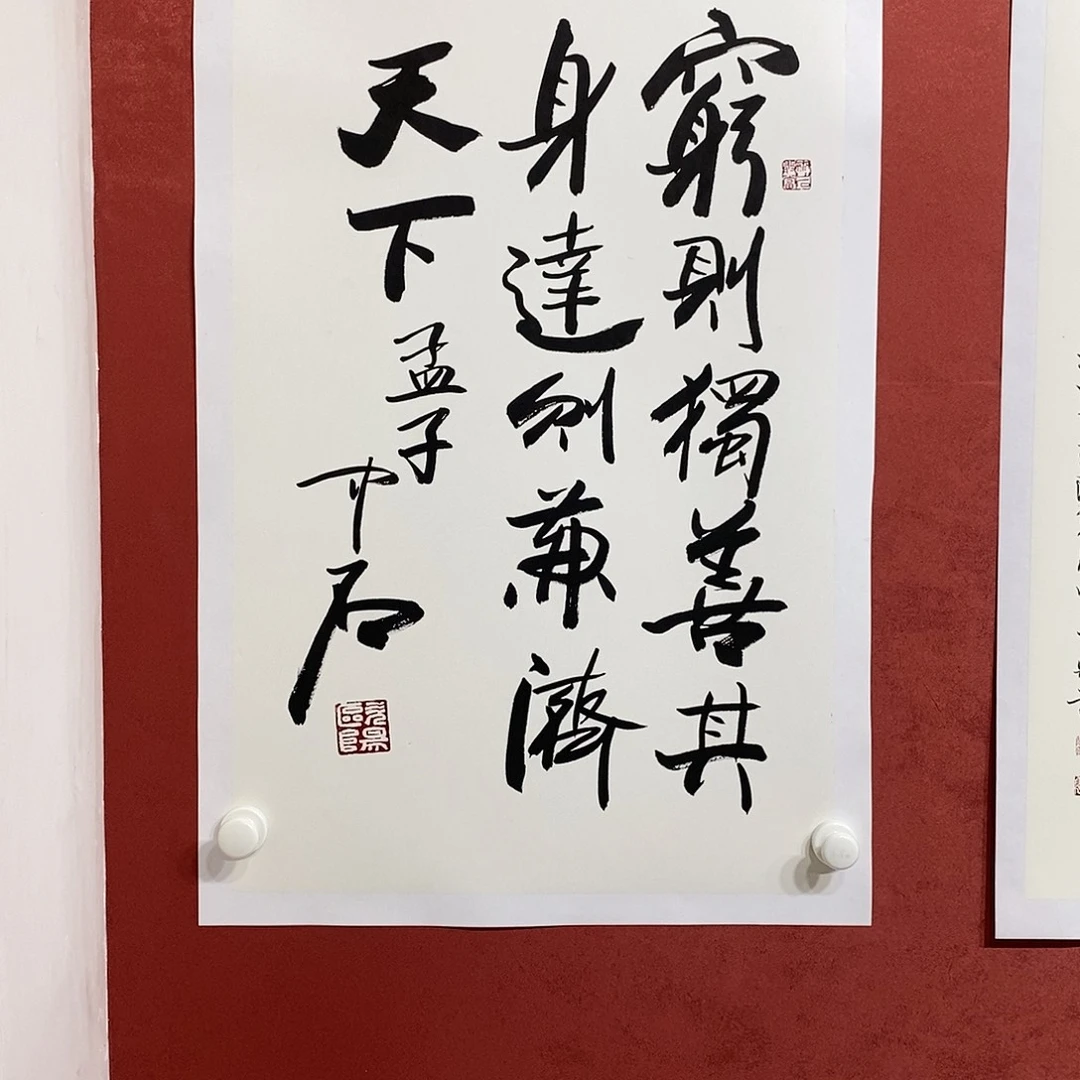 窮則獨善其
身達則兼濟
天下孟子
中石
歐陽